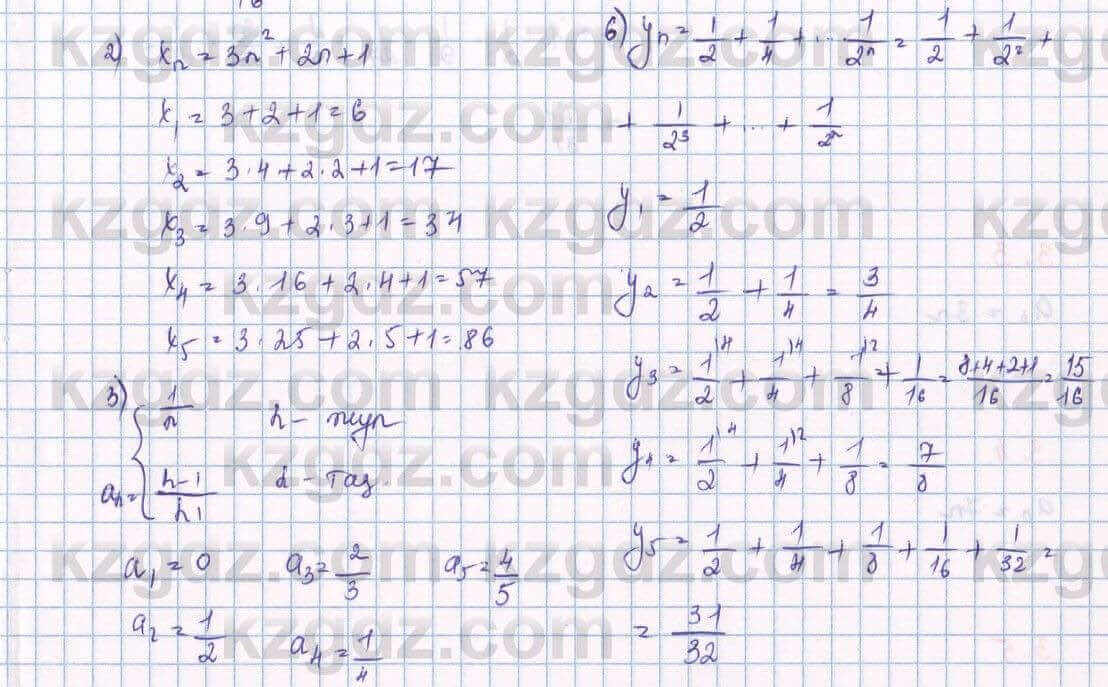 2) xₙ = 3n² + 2n + 1
x₁ = 3 + 2 + 1 = 6
x₂ = 3·4 + 2·2 + 1 = 17
x₃ = 3·9 + 2·3 + 1 = 34
x₄ = 3·16 + 2·4 + 1 = 57
x₅ = 3·25 + 2·5 + 1 = 86
3) aₙ = { 1/n n – жуп
(n-1)/n n – тақ.
a₁ = 0 a₃ = 2/3 a₅ = 4/5
a₂ = 1/2 a₄ = 1/4
6) yₙ = 1/2 + 1/4 + ... 1/2ⁿ = 1/2 + 1/2² +
+ 1/2³ + ... + 1/2ⁿ
y₁ = 1/2
y₂ = 1/2 + 1/4 = 3/4
y₃ = 1/2 + 1/4 + 1/8 + 1/16 = (8+4+2+1)/16 = 15/16
y₄ = 1/2 + 1/4 + 1/8 = 7/8
y₅ = 1/2 + 1/4 + 1/8 + 1/16 + 1/32 =
= 31/32
kzgdz.com